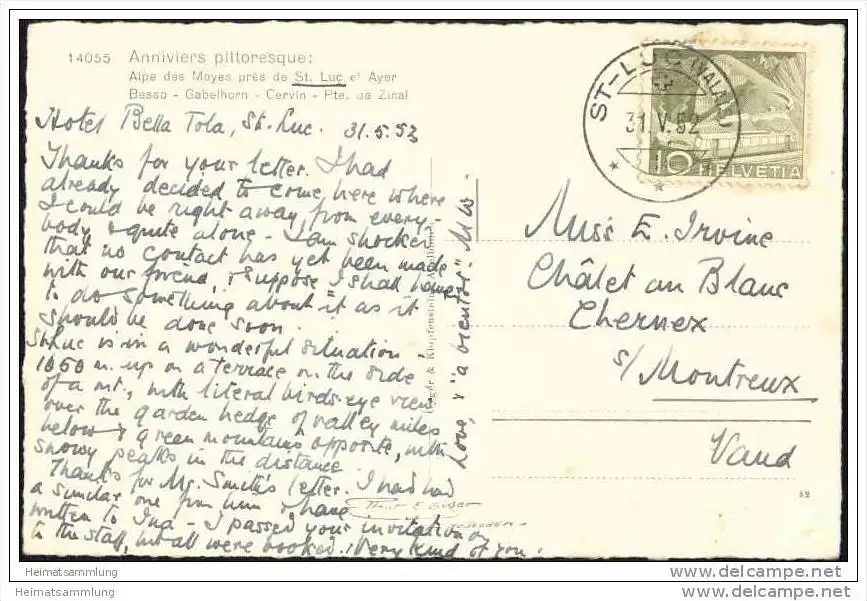 14055 Anniviers pittoresque:
Alpe des Moyes près de St. Luc et Ayer
Besso - Gabelhorn - Cervin - Pte. de Zinal
Hotel Bella Tola, St. Luc. 31.5.52
Thanks for your letter. I had
already decided to come here where
I could be right away from every-
body & quite alone - I am shocked
that no contact has yet been made
with our friend, I suppose I shall have
to do something about it as it
should be done soon.
St. Luc is in a wonderful situation -
1650 m. up on a terrace on the side
of a mt., with literal birds-eye view
over the garden hedge of valley miles
below & green mountains opposite, with
snowy peaks in the distance.
Thanks for Mr. Smith's letter. I had had
a similar one from him & have
written to Ina - I passed your invitation on
to the staff, but all were booked. Very kind of you!
Love, & "à bientôt". MW.
Klopfenstein, Adelboden
ST-LUC (VALAIS)
31.V.52
10 HELVETIA
Miss E. Irvine
Châlet au Blanc
Chernex
s/ Montreux
Vaud
52
Heimatsammlung
Heimatsammlung
www.delcampe.net